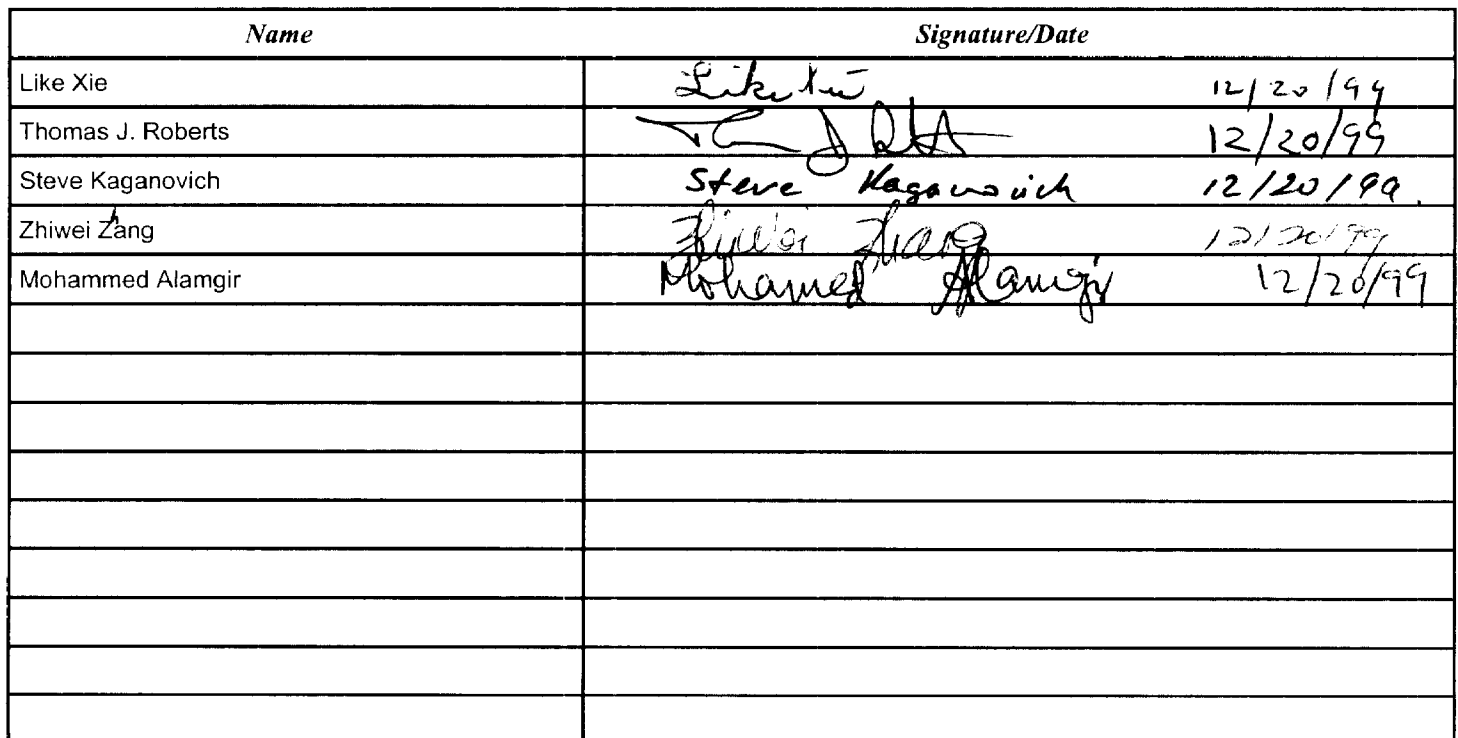 Name Signature/Date
Like Xie Like Xie 12/20/99
Thomas J. Roberts 12/20/99
Steve Kaganovich Steve Kaganovich 12/20/99.
Zhiwei Zhang Zhiwei Zhang 12/20/99
Mohammed Alamgir Mohamed Alamgir 12/20/99